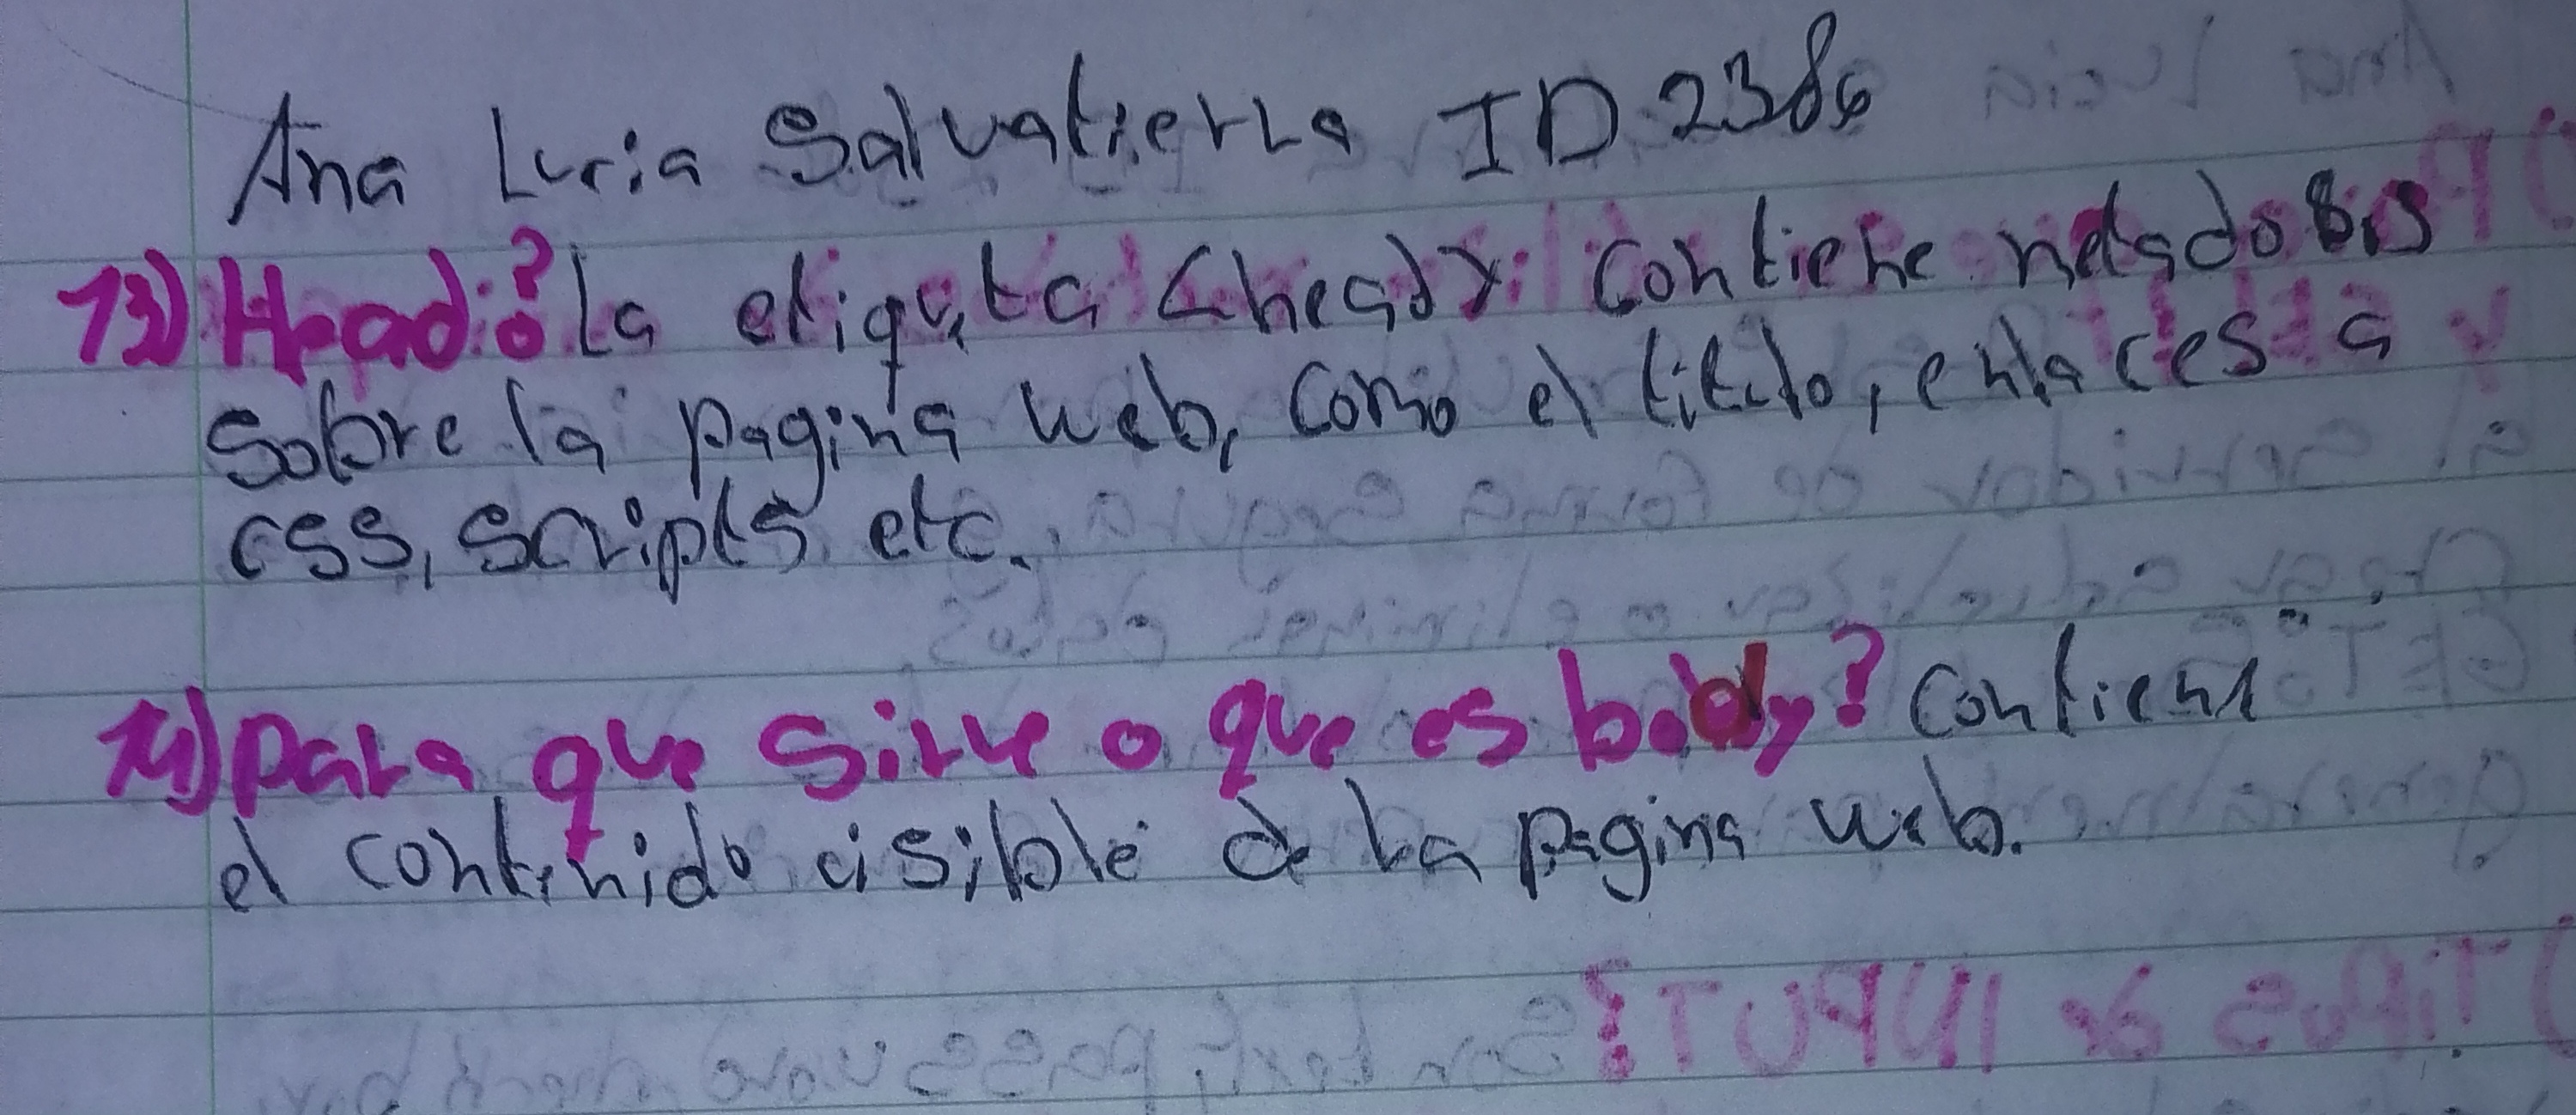 Ana Lucia Salvatierra ID 2386
13) Head:? La etiqueta <head>: contiene metadatos
sobre la pagina web, como el titulo, enlaces a
css, scripts etc.
14) para que sirve o que es body? contiene
el contenido visible de la pagina web.